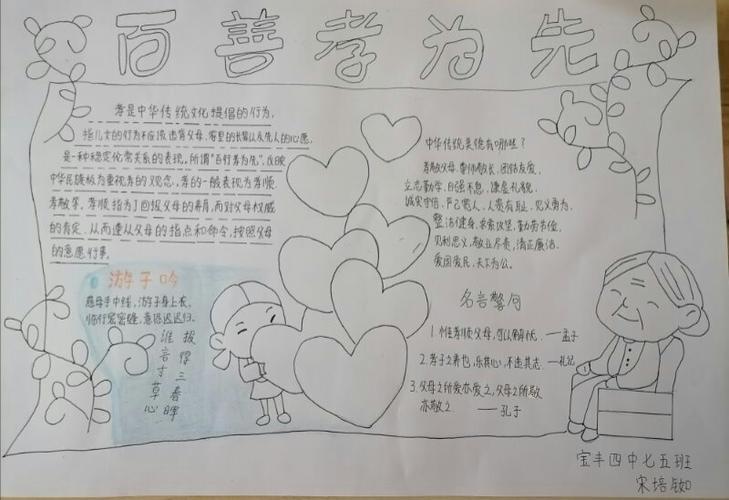 百善孝为先
孝是中华传统文化提倡的行为,
指儿女的行为不应该违背父母、家里的长辈以及先人的心愿,
是一种稳定伦常关系的表现,所谓"百行孝为先",反映
中华民族极为重视孝的观念,孝的一般表现为孝顺、
孝敬等,孝顺指为了回报父母的养育,而对父母权威
的肯定,从而遵从父母的指点和命令,按照父母
的意愿行事。
游子吟
慈母手中线,游子身上衣,
临行密密缝,意恐迟迟归。
谁言寸草心
报得三春晖
中华传统美德有哪些?
孝敬父母、尊师敬长、团结友爱、
立志勤学、自强不息、谦虚礼貌、
诚实守信、严己宽人、人贵有耻、见义勇为、
整洁健身、求索攻坚、勤劳节俭、
见利思义、敬业尽责、清正廉洁、
爱国爱民、天下为公。
名言警句
1.惟孝顺父母,可以解忧。——孟子
2.孝子之养也,乐其心,不违其志。—礼记
3.父母之所爱亦爱之,父母之所敬
亦敬之 ——孔子
宝丰四中七五班
宋培